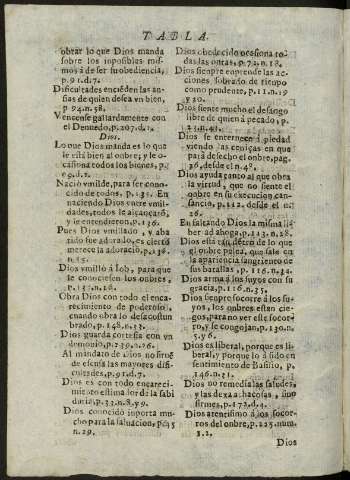 TABLA.
obrar lo que Dios manda
sobre los inposibles mis-
mos à de ser su obediencia,
p.91.d.7.
Dificultades enciẽden las an-
sias de quien desea vn bien,
p 94.n.58.
Vencense gallardamente con
el Denuedo, p.207.d.1.
Dios.
Lo que Dios manda es lo que
le està bien al onbre, y le o-
casiona todos los bienes, p.
Naciò vmilde, para ser cono-
cido de todos, p.135. En
naciendo Dios entre vmil-
dades, todos le alcançarõ,
y le entendieron, p.136.
Pues Dios vmillado, y aba
tido fue adorado, es cierto
merece la adoraciò, p.136.
n.15.
Dios vmillò à Iob, para que
le conociesen los onbres,
Obra Dios con todo el enca-
recimiento de poderoso,
cuando obra lo desacostun
brado, p.148.n.13.
Dios guarda cortesia con vn
demonio, p.239.n.76.
Al mandato de Dios no sirue
de escusa las mayores difi-
cultades, p.91.d.7.
Dios es con todo encareci-
miento estimador de la sabi
duria, p.33.n.8.y 9.
Dios conociò inporta mu-
cho para la saluacion, p.35
n.29.
Dios obedecido ocasiona to-
das las onras, p.72.n.18.
Dios sienpre enprende las ac-
ciones, sobrado de tienpo
como prudente, p.11.n.19
y 20.
Dios siente mucho el desaogo
libre de quien à pecado, p.
21.n.41.
Dios se enternece à piedad
viendo las ceniças en que
parà desecho el onbre, pag.
26, desde el n.48.
Dios ayuda tanto al que obra
la virtud, que no siente el
onbre en su execucion, can-
sancio, p.112. desde el n.
26.
En faltando Dios la misma li-
ber ad ahoga, p.113.n.28.
Dios està tan dentro de lo que
el onbre pelea, que sale en
la apariencia sangriento de
sus batallas, p.116.n.34.
Dios arma à los suyos con su
gracia, p.116.n.35.
Dios sienpre socorre à los su-
yos, los onbres estan cie-
gos, para no ver este socor-
ro, y se congojan, p.130.n.
5.y 6.
Dios es liberal, porque es li-
beral, y porque lo à sido en
sentimiento de Basilio, p.
146.n.21.
Dios no remedia las saludes,
y las dexa achacosas, sino
firmes, p.172.d.4.
Dios atentisimo à los socor-
ros del onbre, p.225.num.
Dios